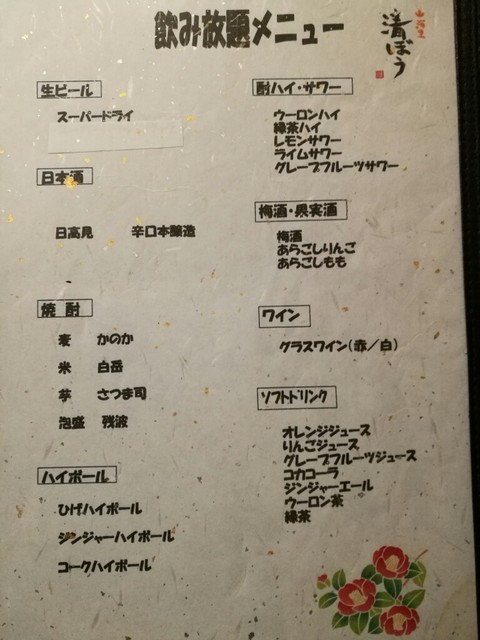 飲み放題メニュー
清ぼう
生ビール
スーパードライ
日本酒
日高見　辛口本醸造
焼酎
麦　かのか
米　白岳
芋　さつま司
泡盛　残波
ハイボール
ひげハイボール
ジンジャーハイボール
コークハイボール
酎ハイ・サワー
ウーロンハイ
緑茶ハイ
レモンサワー
ライムサワー
グレープフルーツサワー
梅酒・果実酒
梅酒
あらごしりんご
あらごしもも
ワイン
グラスワイン(赤／白)
ソフトドリンク
オレンジジュース
りんごジュース
グレープフルーツジュース
コカコーラ
ジンジャーエール
ウーロン茶
緑茶